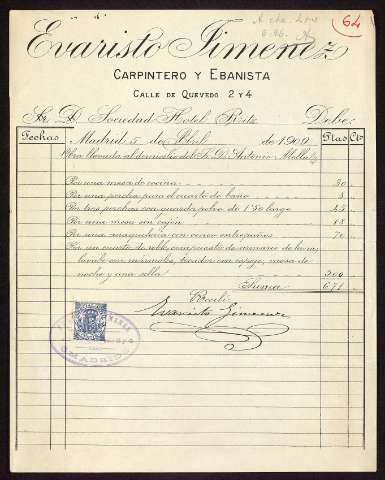 A cta. Lme
6.96.
64
Evaristo Jimenez
CARPINTERO Y EBANISTA
CALLE DE QUEVEDO 2 Y 4
Sr. D. Sociedad Hotel Ritz Debe:
Fechas. Madrid 5 de Abril de 1909 Ptas Cts
Obra llevada al domicilio del Sr. D. Antonio Mella
Por una mesa de cocina 30
Por una percha para el cuarto de baño
Por tres perchas con guarda polvo de 1'50 largo
Por una mesa con cajon 18
Por una anaqueleria con cinco entrepaños 70
Por un cuarto de roble, compuesto de armario de luna,
lavabo con marmoles, tocador con espejo, mesa de
noche y una silla 500
Suma 671
Recibí
Evaristo Jimenez
MADRID